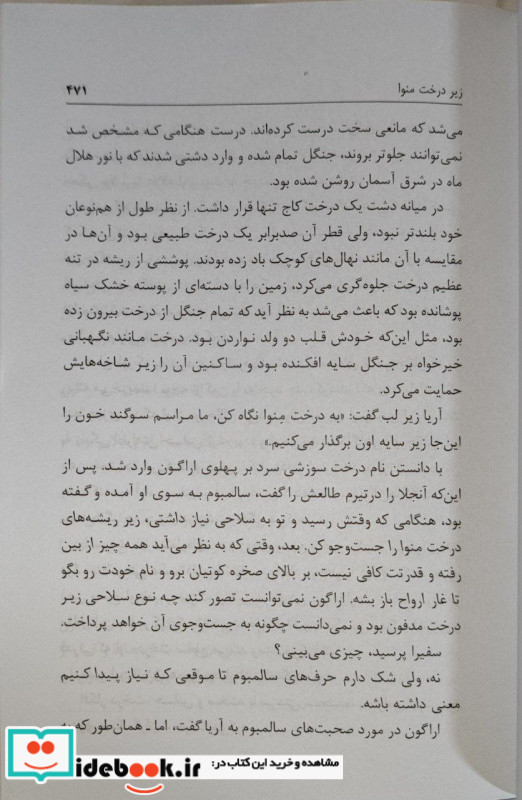 زیر درخت منوا
۴۷۱
می‌شد که مانعی سخت درست کرده‌اند. درست هنگامی که مشخص شد
نمی‌توانند جلوتر بروند، جنگل تمام شده و وارد دشتی شدند که با نور هلال
ماه در شرق آسمان روشن شده بود.
در میانه دشت یک درخت کاج تنها قرار داشت. از نظر طول از هم‌نوعان
خود بلندتر نبود، ولی قطر آن صدبرابر یک درخت طبیعی بود و آن‌ها در
مقایسه با آن مانند نهال‌های کوچک باد زده بودند. پوششی از ریشه در تنه
عظیم درخت جلوه‌گری می‌کرد، زمین را با دسته‌ای از پوسته خشک سیاه
پوشانده بود که باعث می‌شد به نظر آید که تمام جنگل از درخت بیرون زده
بود، مثل این‌که خودش قلب دو ولد نواردن بود. درخت مانند نگهبانی
خیرخواه بر جنگل سایه افکنده بود و ساکنین آن را زیر شاخه‌هایش
حمایت می‌کرد.
آریا زیر لب گفت: «به درخت مِنوا نگاه کن، ما مراسم سوگند خون را
این‌جا زیر سایه اون برگذار می‌کنیم.»
با دانستن نام درخت سوزشی سرد بر پهلوی اراگون وارد شد. پس از
این‌که آنجلا را درتیرم طالعش را گفت، سالمبوم به سوی او آمده و گفته
بود، هنگامی که وقتش رسید و تو به سلاحی نیاز داشتی، زیر ریشه‌های
درخت منوا را جست‌وجو کن. بعد، وقتی که به نظر می‌آید همه چیز از بین
رفته و قدرتت کافی نیست، بر بالای صخره کوتیان برو و نام خودت رو بگو
تا غار ارواح باز بشه. اراگون نمی‌توانست تصور کند چه نوع سلاحی زیر
درخت مدفون بود و نمی‌دانست چگونه به جست‌وجوی آن خواهد پرداخت.
سفیرا پرسید، چیزی می‌بینی؟
نه، ولی شک دارم حرف‌های سالمبوم تا موقعی که نیاز پیدا کنیم
معنی داشته باشه.
اراگون در مورد صحبت‌های سالمبوم به آریا گفت، اما ـ همان‌طور که به
idebook.ir
مشاهده و خرید این کتاب در: